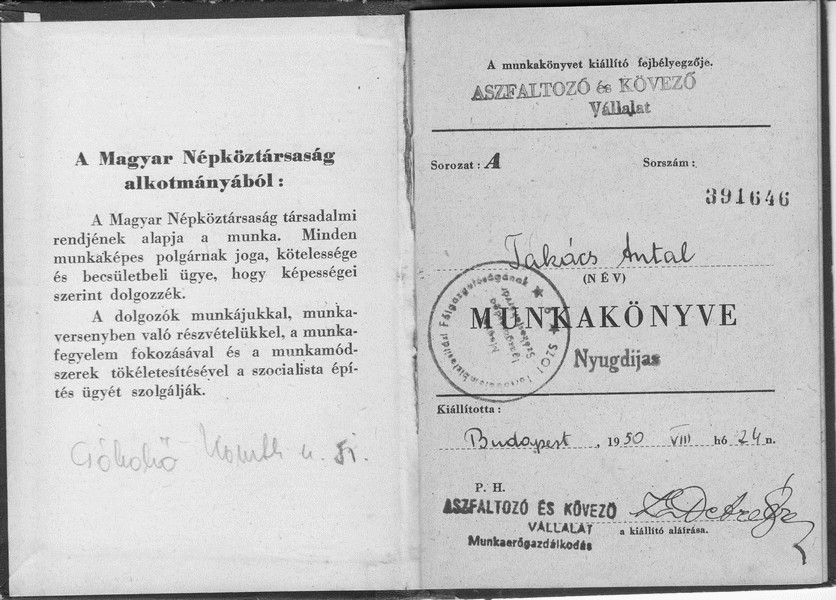 A Magyar Népköztársaság
alkotmányából:
A Magyar Népköztársaság társadalmi
rendjének alapja a munka. Minden
munkaképes polgárnak joga, kötelessége
és becsületbeli ügye, hogy képességei
szerint dolgozzék.
A dolgozók munkájukkal, munka-
versenyben való részvételükkel, a munka-
fegyelem fokozásával és a munkamód-
szerek tökéletesítésével a szocialista épí-
tés ügyét szolgálják.
A munkakönyvet kiállító fejbélyegzője.
ASZFALTOZÓ és KÖVEZŐ
Vállalat
Sorozat: A Sorszám:
391646
Takács Antal
(NÉV)
MUNKAKÖNYVE
Nyugdijas
Kiállította:
Budapest, 1950 VIII hó 24 n.
P. H.
ASZFALTOZÓ ÉS KÖVEZŐ
VÁLLALAT
a kiállító aláírása.
Munkaerőgazdálkodás